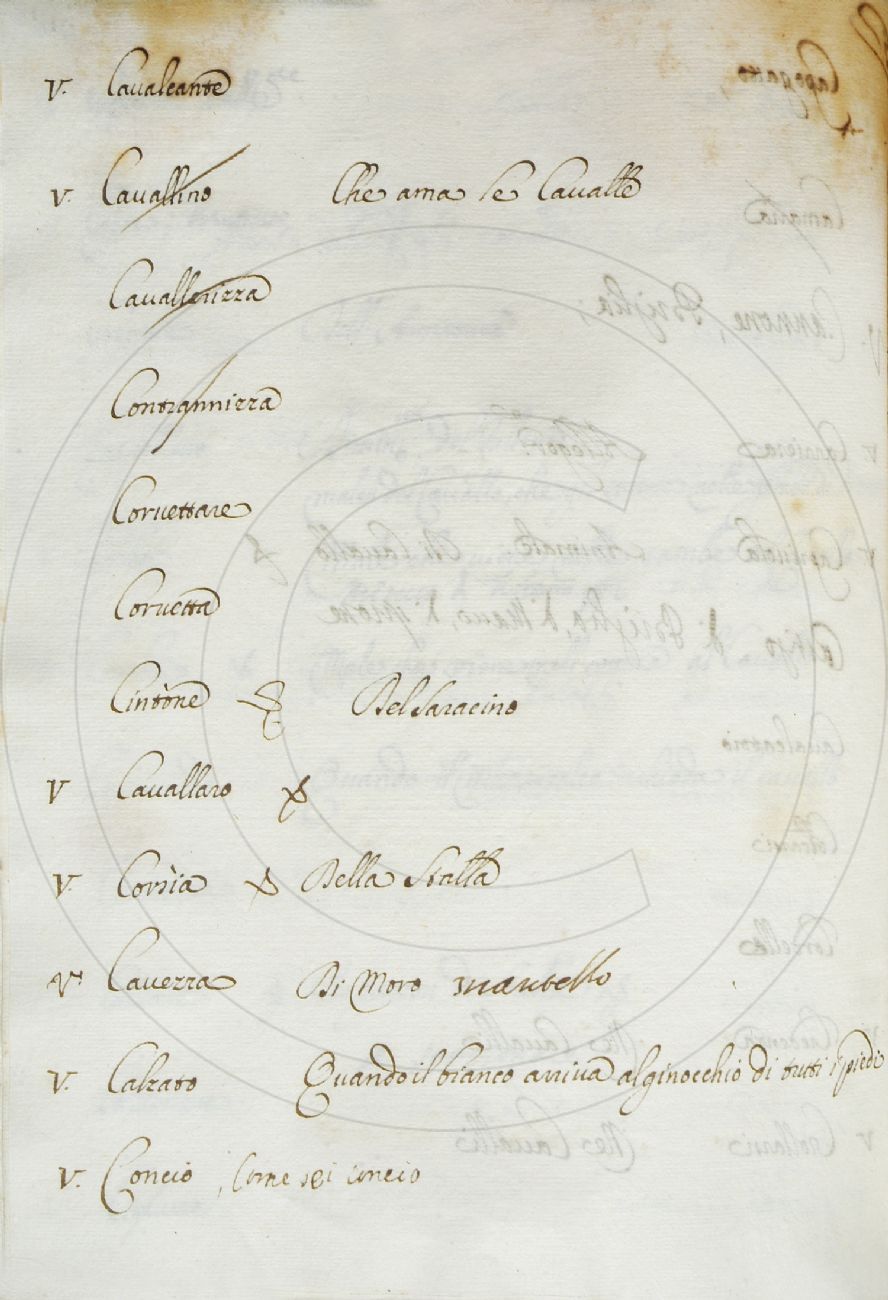 V. Caualcante
V. Cauallino Che ama le Caualle
Cauallerizza
Contrannizza
Coruettare
Coruetta
Cintone Del Saracino
V Cauallaro
V. Corsia Della Stalla
V. Cauezza Di Moro mantello
V. Calzato Quando il bianco arriua al ginocchio di tutti i piedi
V. Concio, Come sei concio